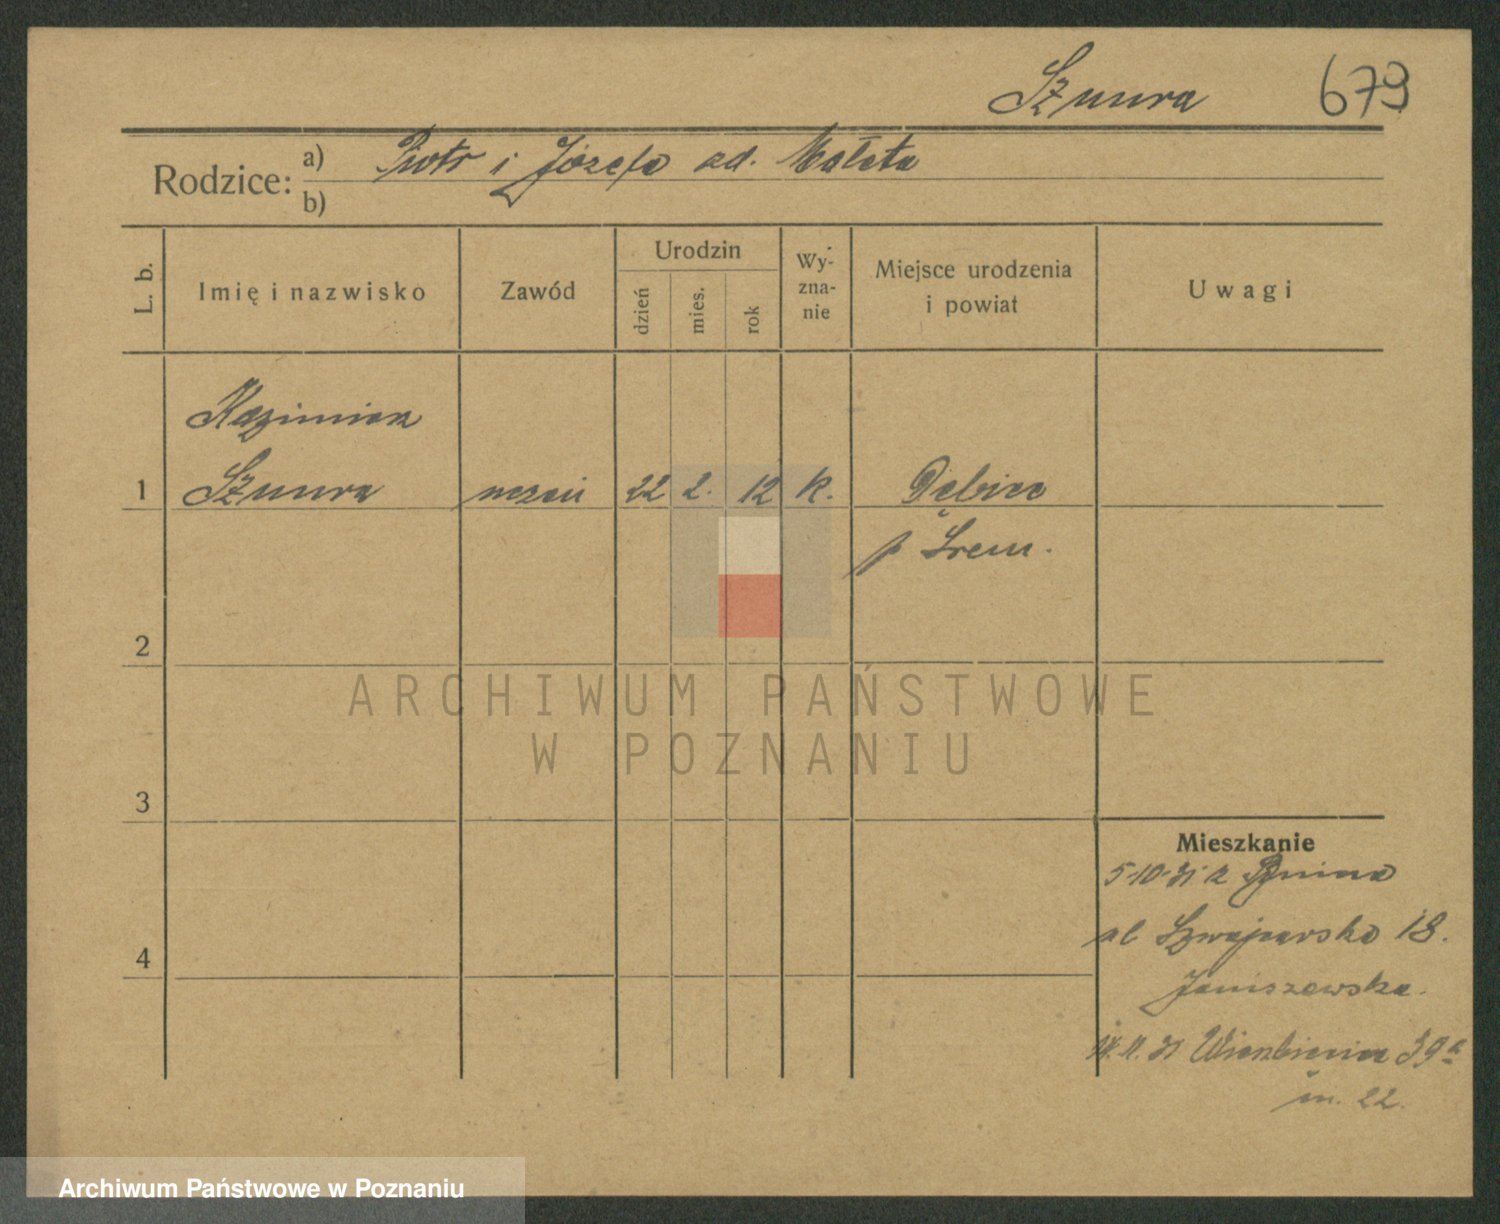 Szmura 679
Rodzice: a) Piotr i Józefa zd. Małeta
b)
L. b.
Imię i nazwisko
Zawód
Urodzin
dzień
mies.
rok
Wy-
zna-
nie
Miejsce urodzenia
i powiat
Uwagi
Kazimierz
1 Szmura uczeń 22 2. 12 k. Dębiec
p Śrem.
2
ARCHIWUM PAŃSTWOWE
W POZNANIU
3
Mieszkanie
5-10-31 z Bnina
ul Szwajcarska 18.
4
Janiszewska.
11. 31 Wierzbięcice 39a
m. 22.
Archiwum Państwowe w Poznaniu